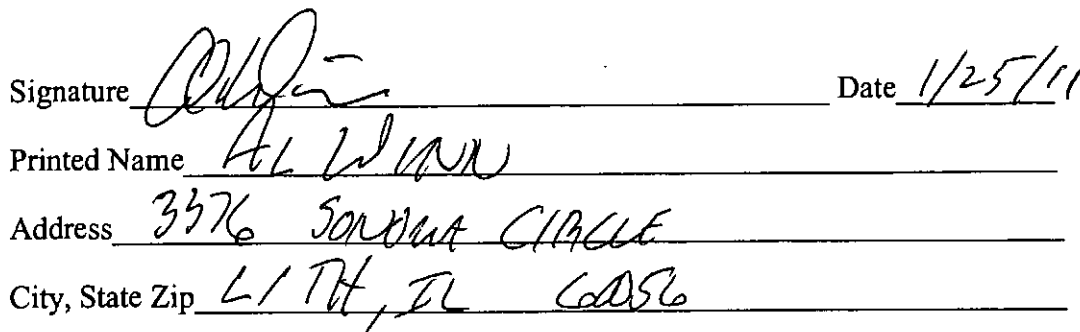 Signature Date 1/25/11
Printed Name AL WINN
Address 3376 SONOMA CIRCLE
City, State Zip LITH, IL